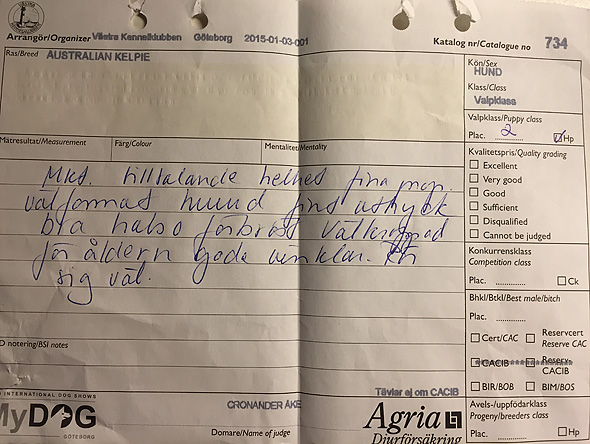 Arrangör/Organizer Västra Kennelklubben Göteborg 2015-01-03-001
Katalog nr/Catalogue no 734
Ras/Breed AUSTRALIAN KELPIE
Kön/Sex
HUND
Klass/Class
Valpklass
Valpklass/Puppy class
Plac. 2 Hp
Mätresultat/Measurement Färg/Colour Mentalitet/Mentality
Mkt. tilltalande helhet fina prop.
välformat huvud fint uttryck
bra hals o förbröst Välkroppad
för åldern goda vinklar. Rör
sig väl.
Kvalitetspris/Quality grading
Excellent
Very good
Good
Sufficient
Disqualified
Cannot be judged
Konkurrensklass
Competition class
Plac. Ck
Bhkl/Btkl/Best male/bitch
Plac.
Cert/CAC Reservcert
Reserve CAC
CACIB Reserv
CACIB
BIR/BOB BIM/BOS
D notering/BSI notes
Tävlar ej om CACIB
INTERNATIONAL DOG SHOWS
MyDOG
GÖTEBORG
CRONANDER ÅKE
Domare/Name of judge
Agria
Djurförsäkring
Avels-/uppfödarklass
Progeny/breeders class
Plac. Hp